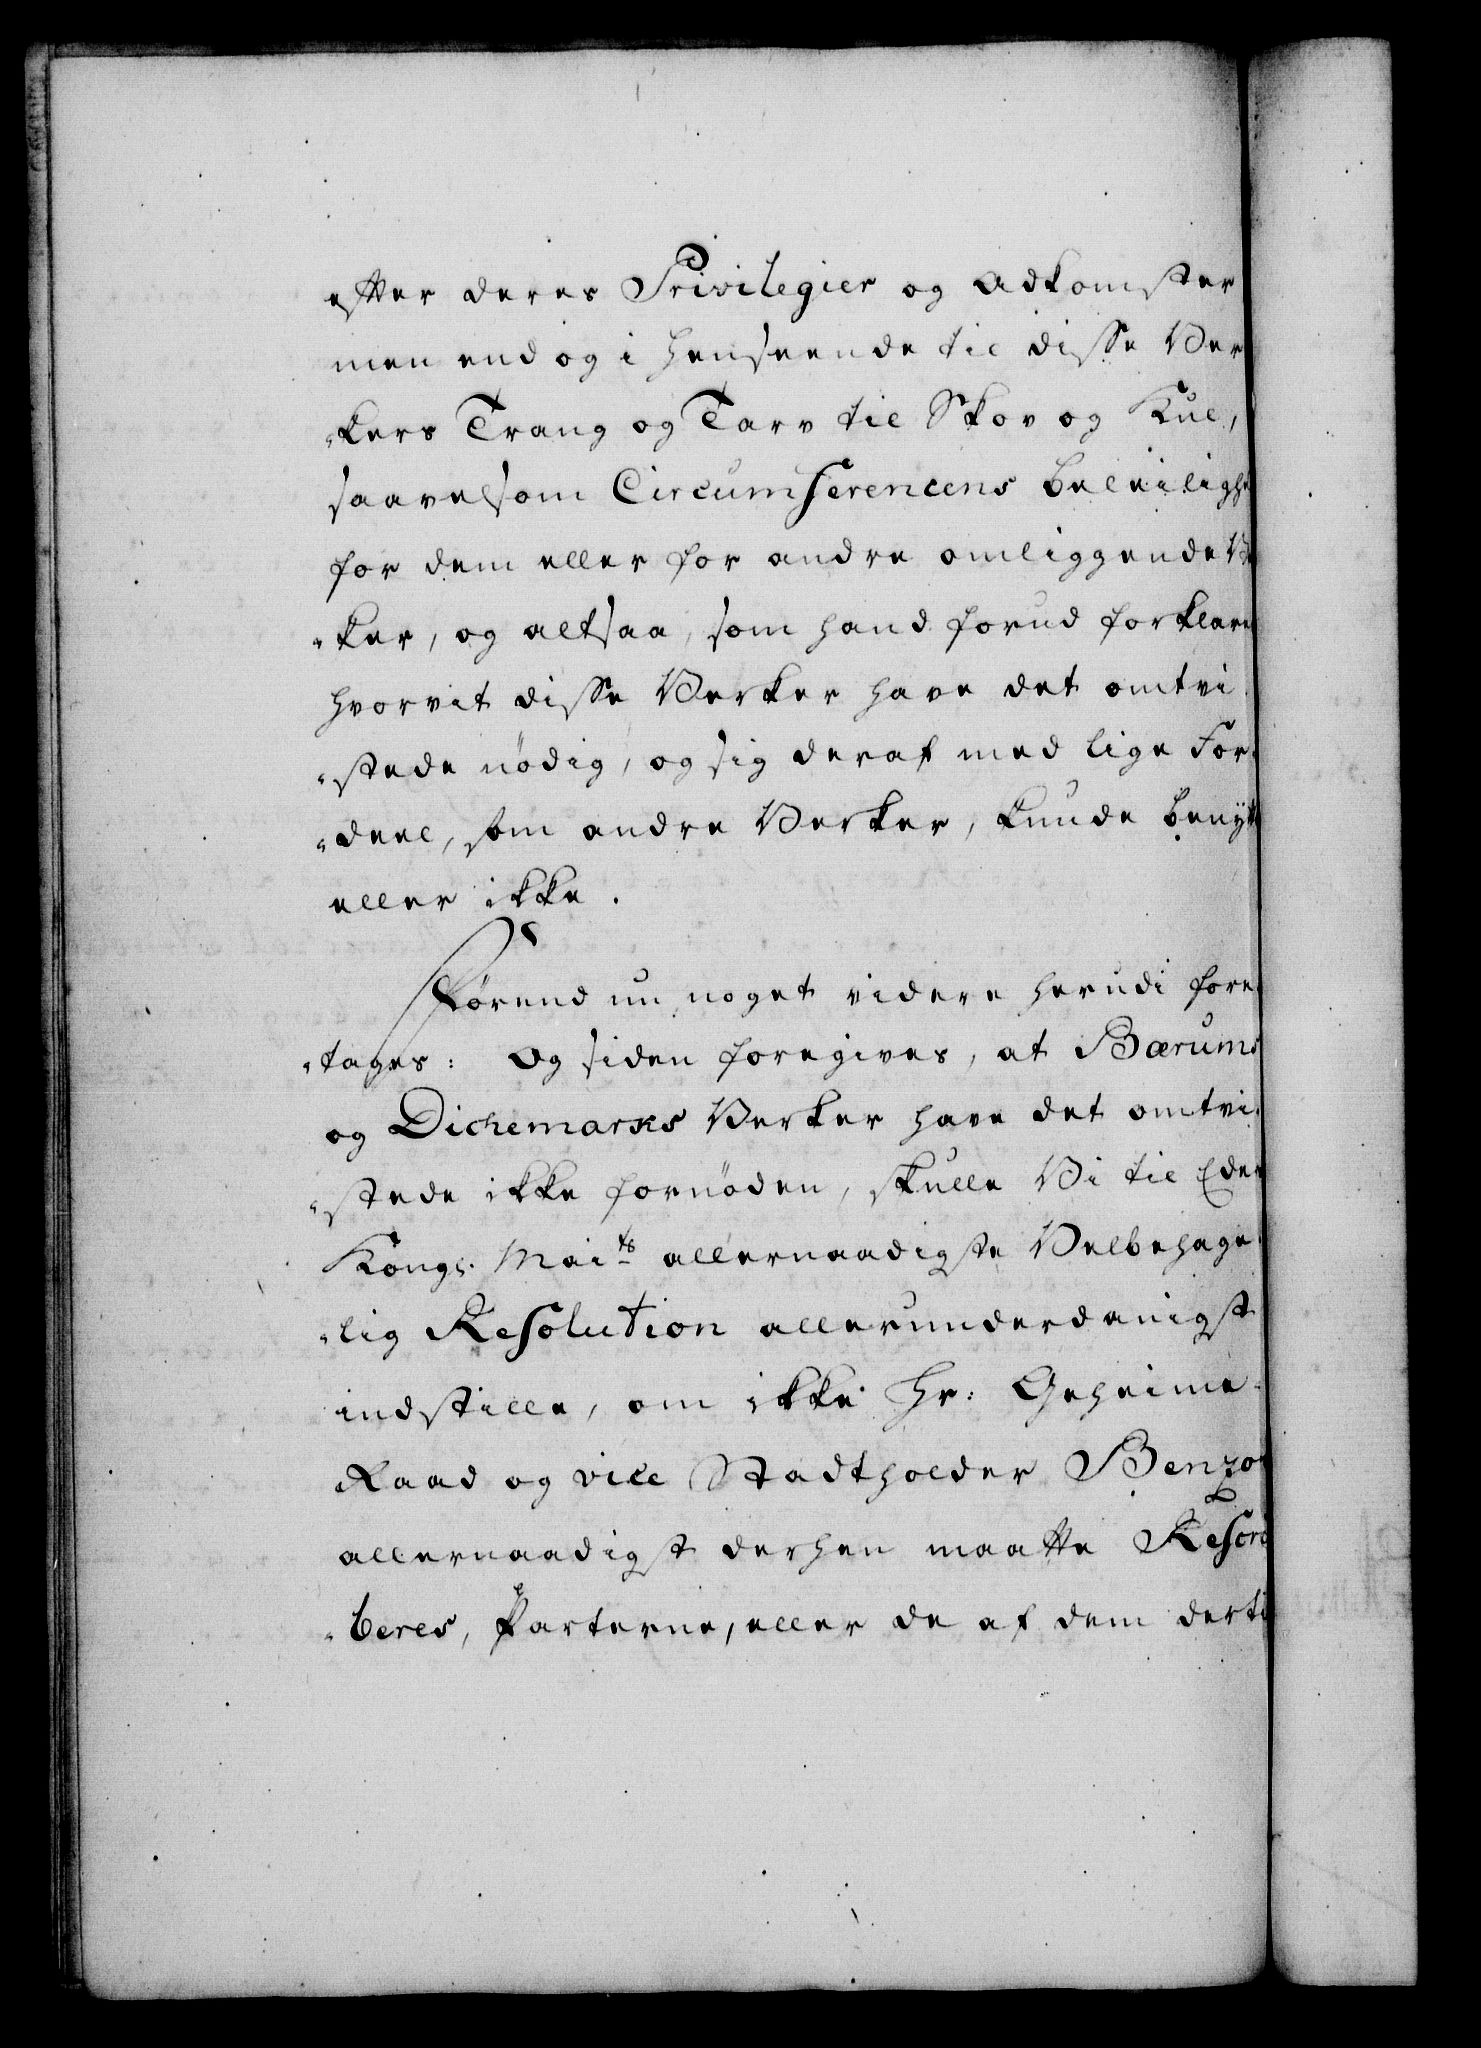 efter deres Privilegier og Adkomster
men end og i henseende til disse Ver
„kers Trang og Tarv til Skov og Kul,
saavelsom Circumferencens beleiligh
for dem eller for andre omliggende Ve
„ker, og altsaa, som hand forud forklare
hvorvit disse Verker have det omtvi
„stede nödig, og sig deraf med lige For„
„deel, som andre Verker, kunde benytt
eller ikke.
Förend nu noget videre herudi fore„
„tages: Og siden foregives, at Bærums
og Dichemarks Verker have det omtvi„
„stede ikke fornöden, skulle Vi til Eders
Kongl. Maits allernaadigste Velbehage„
„lig Resolution allerunderdanigst
indstille, om ikke Hr: Geheime„
Raad og vice Stadtholder Benzon
allernaadigst derhen maatte Rescri
„beres, Parterne, eller de af dem derti